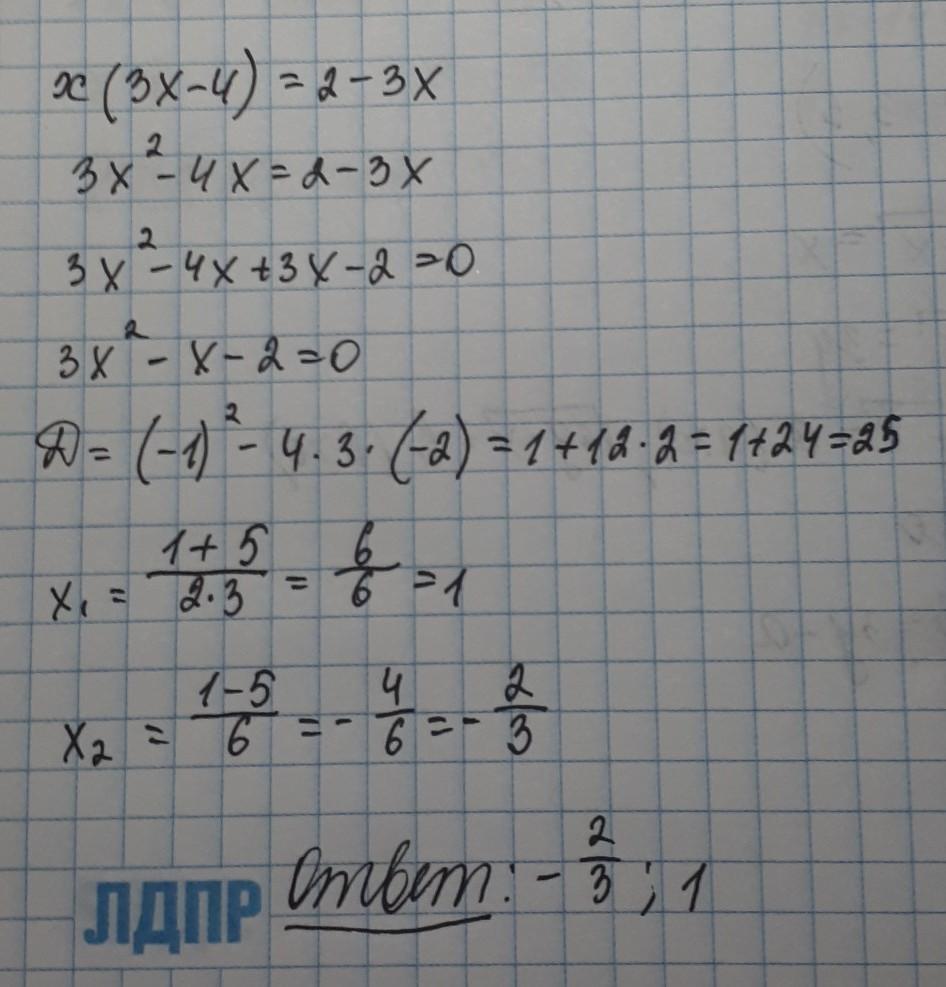 x(3x-4) = 2-3x
3x²-4x=2-3x
3x²-4x+3x-2=0
3x²-x-2=0
D= (-1)²-4·3·(-2)=1+12·2=1+24=25
x₁ = \frac{1+5}{2·3} = \frac{6}{6} =1
x₂ = \frac{1-5}{6} =-\frac{4}{6}=-\frac{2}{3}
ЛДПР Ответ: -\frac{2}{3}; 1